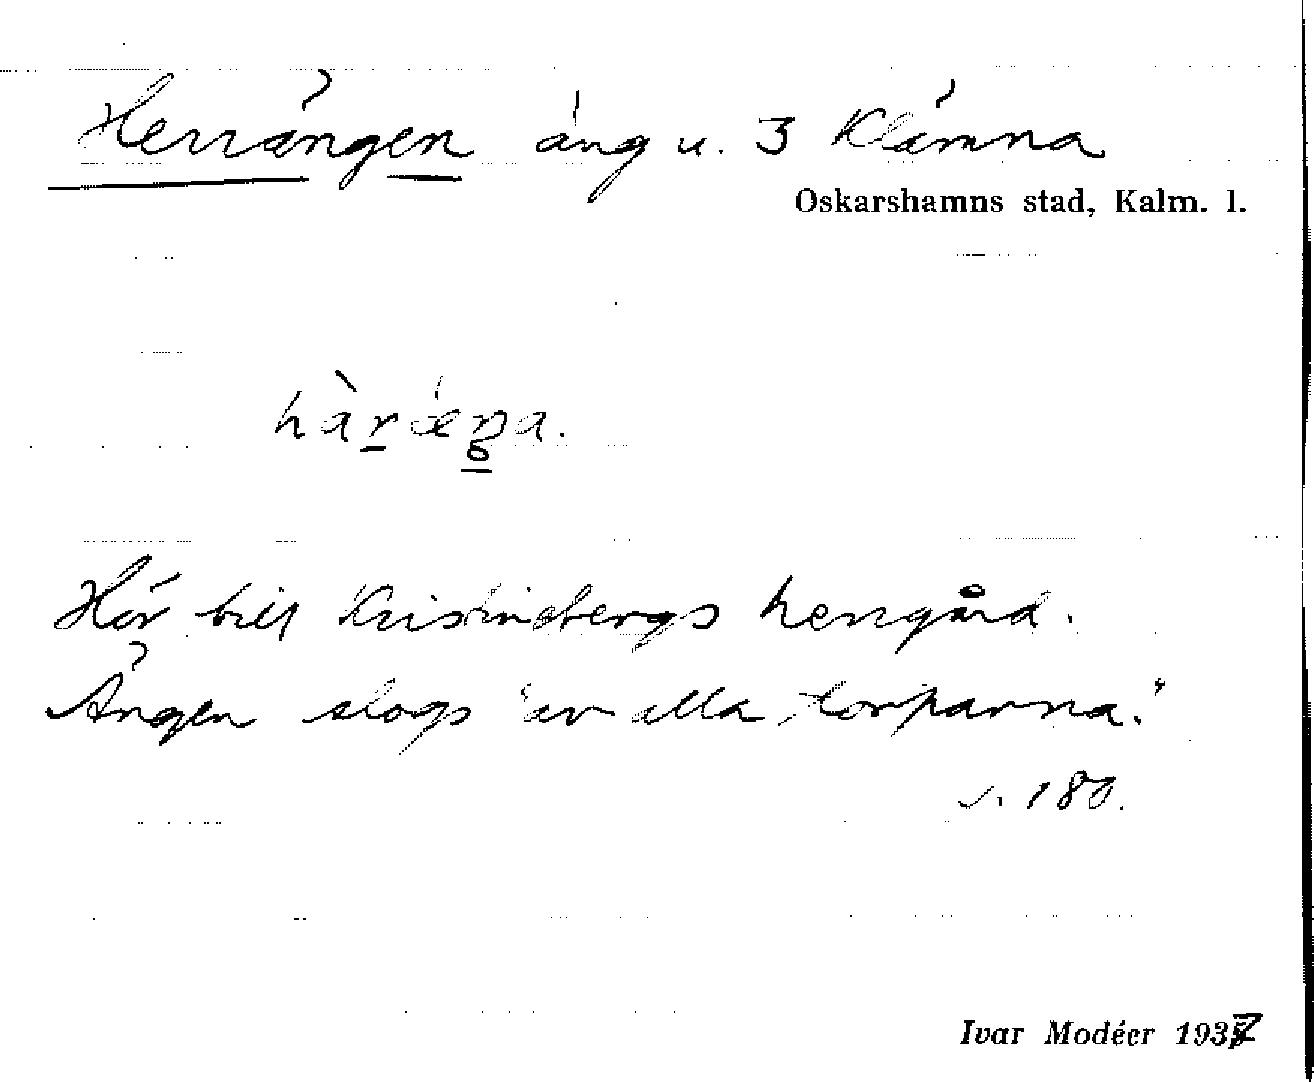 Herrängen äng u. 3 Klämna
Oskarshamns stad, Kalm. l.
hàrǽŋa.
Hör till Kristinebergs herrgård.
Ängen slogs "av alla torparna."
s. 180.
Ivar Modéer 1937